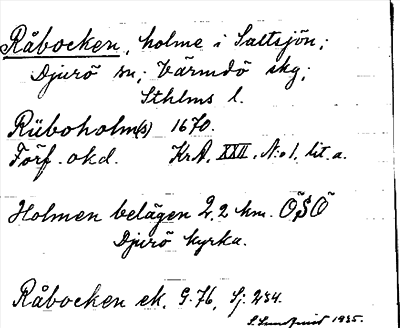 Råbocken, holme i Saltsjön;
Djurö sn; Värmdö skg;
Sthlms l.
Rüboholm(s) 1670.
Förf. okd. KrA. XXII. N:o 1. lit. a.
Holmen belägen 2,2 km. ÖSÖ
Djurö kyrka.
Råbocken ek. G. 76, Sj. 234.
S. Lundqvist 1935.